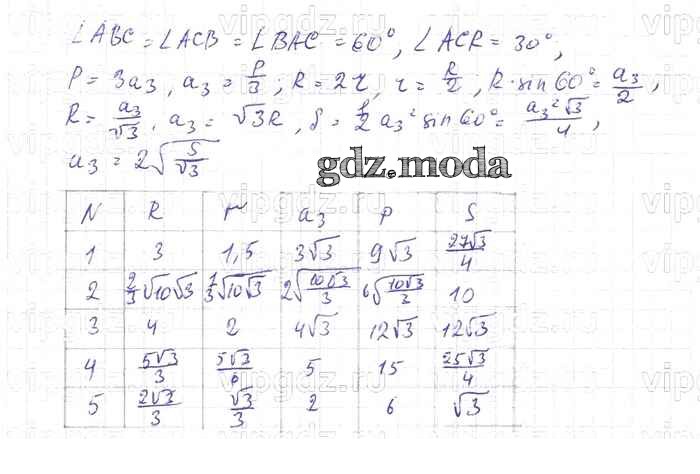 ∠ABC = ∠ACB = ∠BAC = 60°, ∠ACR = 30°,
P = 3a₃, a₃ = P/3; R = 2r, r = R/2, R·sin60° = a₃/2,
R = a₃/√3, a₃ = √3R, S = 1/2 a₃² sin60° = a₃²√3/4,
a₃ = 2√(S/√3)
gdz.moda
N R r a₃ P S
1 3 1,5 3√3 9√3 27√3/4
2 2/3√10√3 1/3√10√3 2√(10√3/3) 6√(10√3/3) 10
3 4 2 4√3 12√3 12√3
4 5√3/3 5√3/6 5 15 25√3/4
5 2√3/3 √3/3 2 6 √3
vipgdz.ru